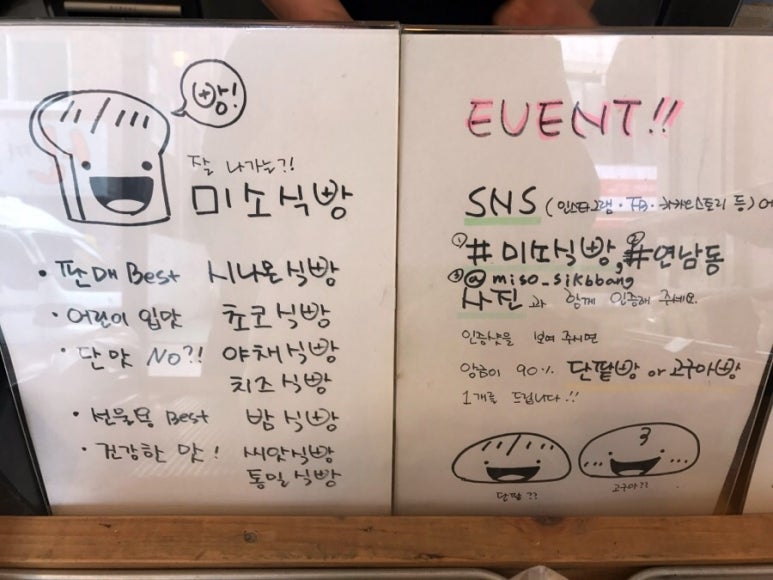 빵!
잘 나가는?!
미소식빵
· 판매 Best 시나몬식빵
· 어린이 입맛 쵸코식빵
· 단맛 No?! 야채식빵
치즈식빵
· 선물용 Best 밤식빵
· 건강한 맛! 씨앗식빵
통밀식빵
EVENT!!
SNS (인스타그램 · FB · 카카오스토리 등)에
① #미소식빵, ② #연남동
③ @miso_sikbbang
사진과 함께 인증해 주세요.
인증샷을 보여 주시면
앙금이 90% 단팥빵 or 고구마빵
1개를 드립니다!!
단팥??
고구마??